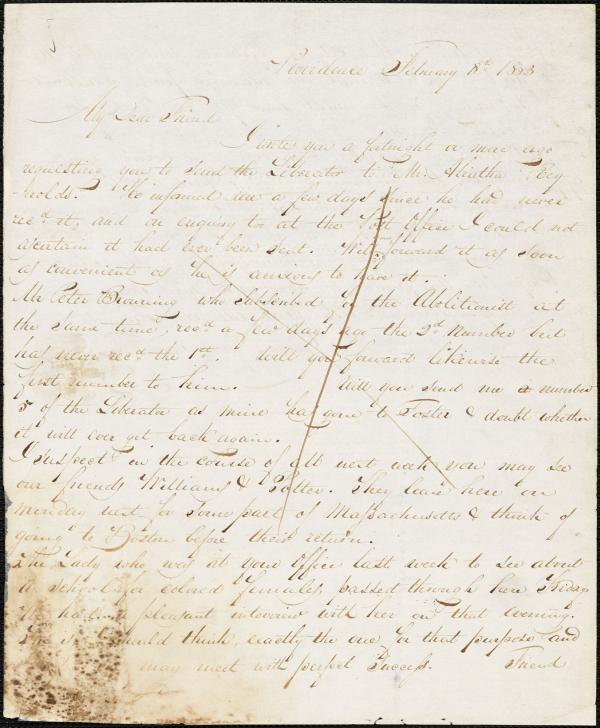 Providence February 8th 1833
My Dear Friend
I wrote you a fortnight or more ago
requesting you to send the Liberator to Mr. Alintha Rey
nolds. He informed me a few days since he had never
recd it, and on enquiry too at the Post Office I could not
ascertain it had ever been sent. Will forward it as soon
as convenient as he is anxious to have it.
Mr Peter Browning who subscribed for the Abolitionist at
the same time, recd a few days ago the 2d number but
has never recd the 1st. Will you forward likewise the
first number to him. Will you send me a number
5 of the Liberator as mine has gone to Foster & doubt whether
it will ever get back again.
I suspect in the course of all next week you may see
our friends Williams & Potter. They leave here on
monday next for some part of Massachusetts & think of
going to Boston before their return.
The Lady who was at your Office last week to see about
a school for colored females, passed through here Friday
We had a pleasant interview with her on that evening.
She is, I should think, exactly the one for that purpose and
may meet with perfect Success. Friend